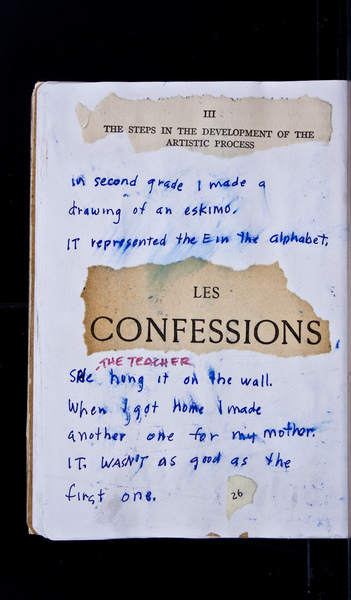 III
THE STEPS IN THE DEVELOPMENT OF THE
ARTISTIC PROCESS
in second grade I made a
drawing of an eskimo.
IT represented the E in the alphabet.
LES
CONFESSIONS
THE TEACHER
She hung it on the wall.
When I got Home I made
another one for my mother.
IT. WASN'T as good as the
first one.
26